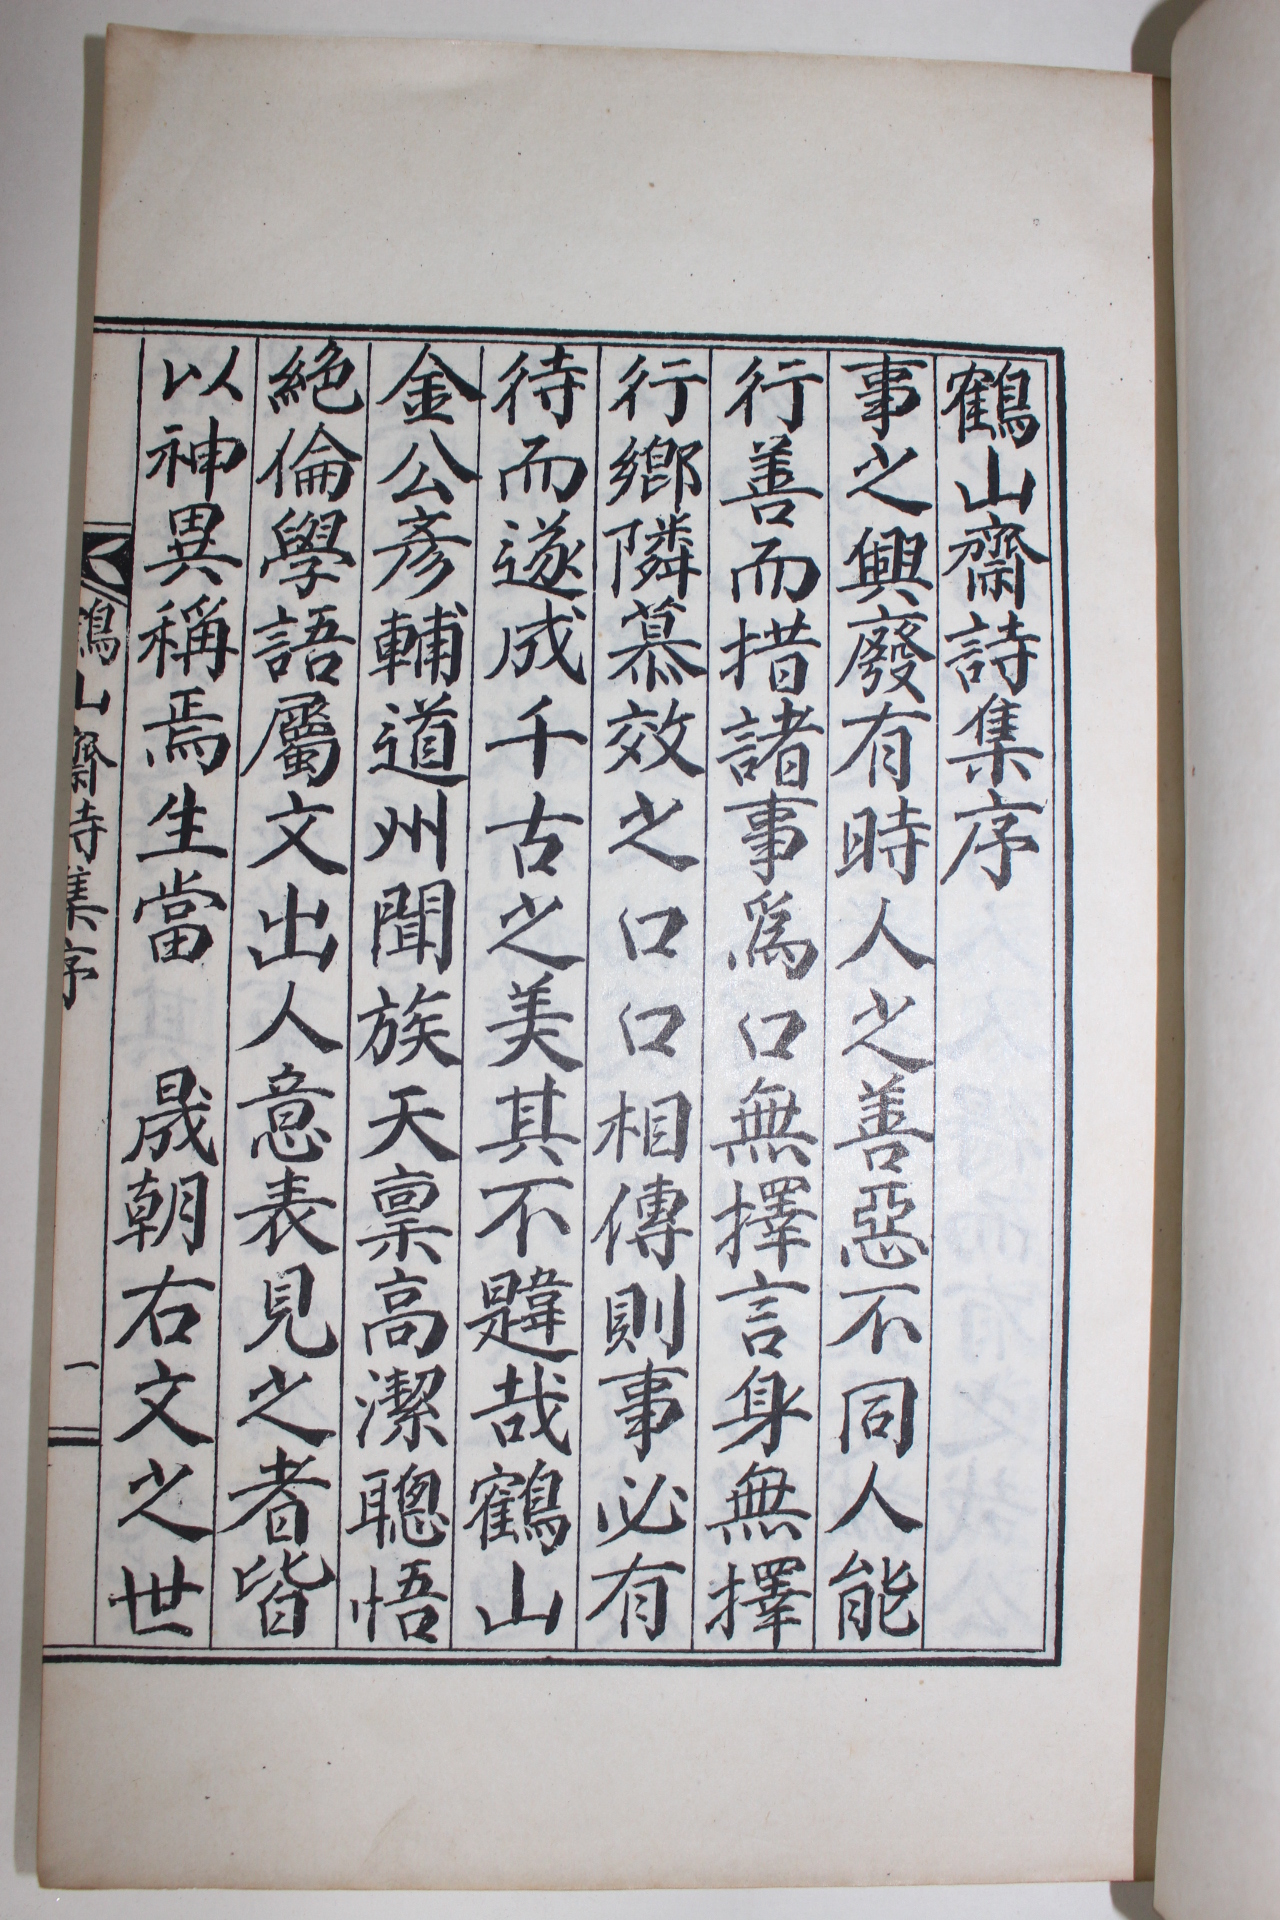 鶴山齋詩集序
事之興廢有時人之善惡不同人能
行善而措諸事爲口無擇言身無擇
行鄕隣慕效之口口相傳則事必有
待而遂成千古之美其不韙哉鶴山
金公彥輔道州聞族天稟高潔聰悟
絶倫學語屬文出人意表見之者皆
以神異稱焉生當 晟朝右文之世
鶴山齋詩集序
一